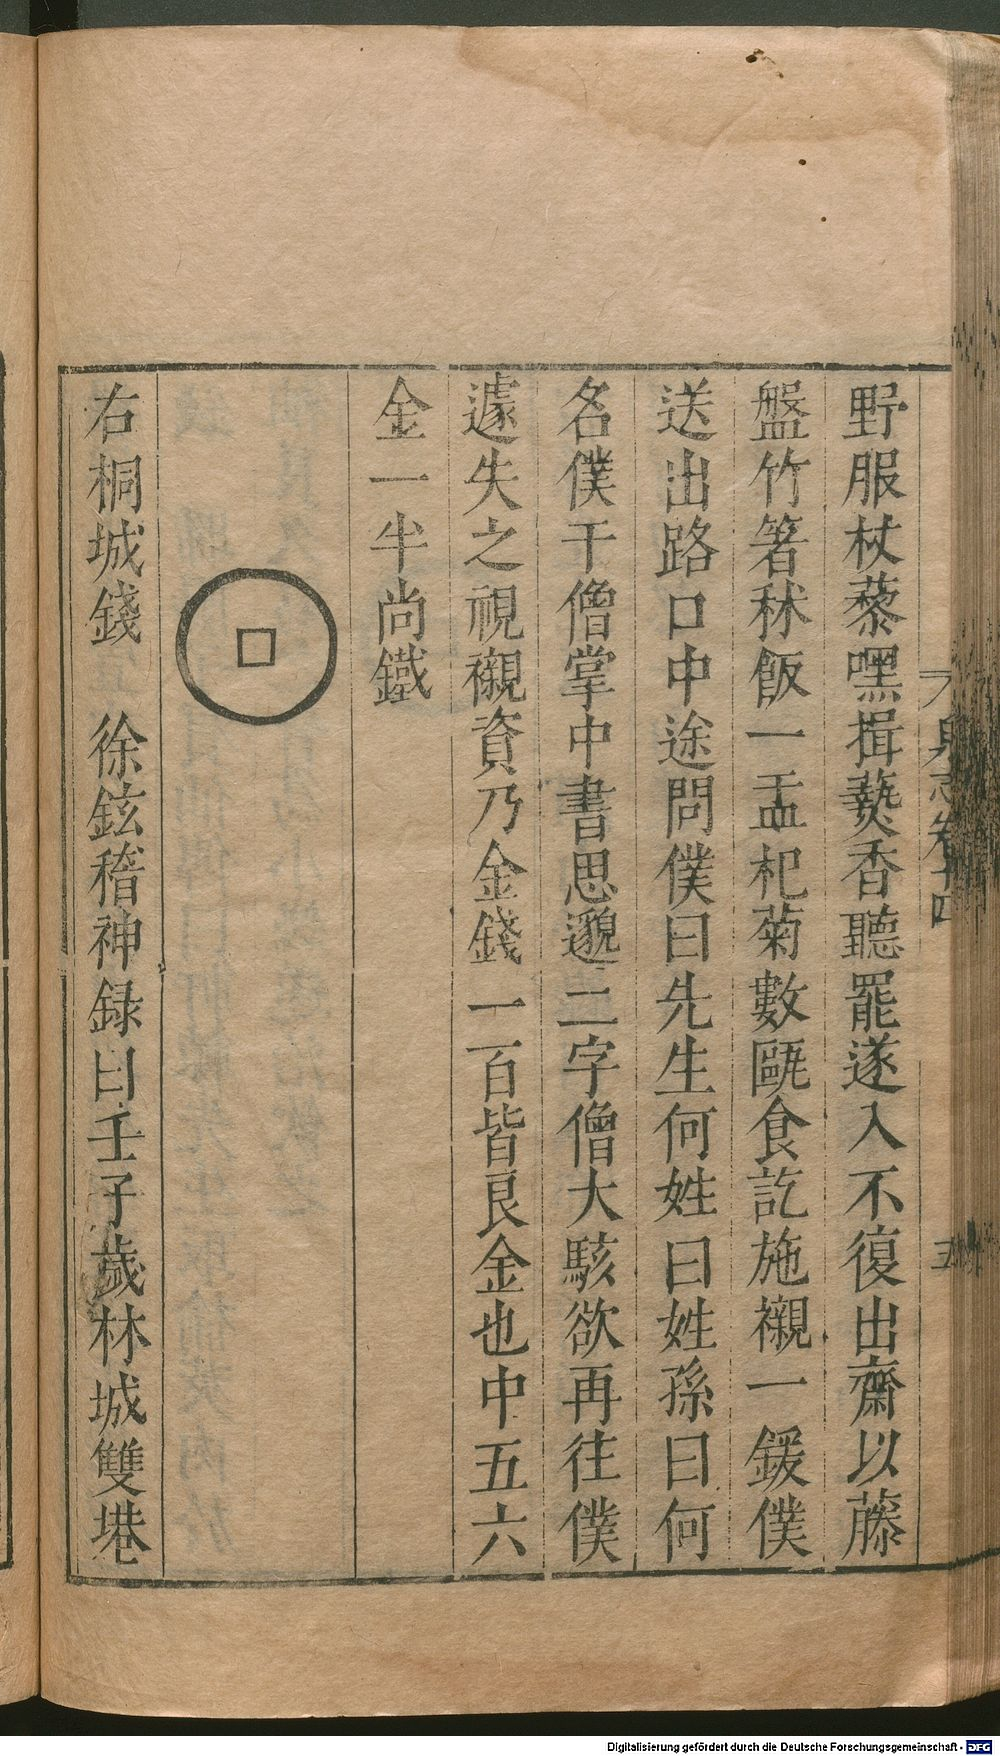 野服杖藜嘿揖爇香聽罷遂入不復出齋以藤
盤竹箸秫飯一盂杞菊數甌食訖施襯一鍰僕
送出路口中途問僕曰先生何姓曰姓孫曰何
名僕于僧掌中書思邈二字僧大駭欲再往僕
遽失之視襯資乃金錢一百皆良金也中五六
金一半尚鐵
右桐城錢 徐鉉稽神録曰壬子歲林城雙港
志卷十四
五
Digitalisierung gefördert durch die Deutsche Forschungsgemeinschaft - DFG